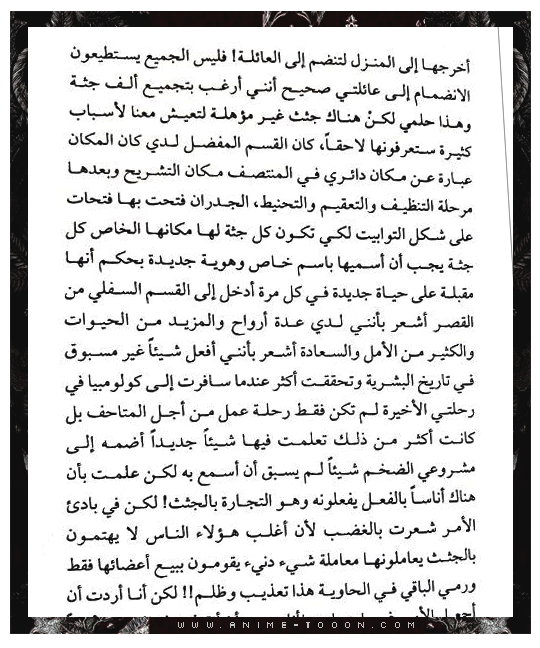 أخرجها إلى المنزل لتنضم إلى العائلة! فليس الجميع يستطيعون
الانضمام إلى عائلتي صحيح أنني أرغب بتجميع ألف جثة
وهذا حلمي لكنْ هناك جثث غير مؤهلة لتعيش معنا لأسباب
كثيرة ستعرفونها لاحقاً، كان القسم المفضل لدي كان المكان
عبارة عن مكان دائري في المنتصف مكان التشريح وبعدها
مرحلة التنظيف والتعقيم والتحنيط، الجدران فتحت بها فتحات
على شكل التوابيت لكي تكون كل جثة لها مكانها الخاص كل
جثة يجب أن أسميها باسم خاص وهوية جديدة بحكم أنها
مقبلة على حياة جديدة في كل مرة أدخل إلى القسم السفلي من
القصر أشعر بأنني لدي عدة أرواح والمزيد من الحيوات
والكثير من الأمل والسعادة أشعر بأنني أفعل شيئاً غير مسبوق
في تاريخ البشرية وتحققت أكثر عندما سافرت إلى كولومبيا في
رحلتي الأخيرة لم تكن فقط رحلة عمل من أجل المتاحف بل
كانت أكثر من ذلك تعلمت فيها شيئاً جديداً أضمه إلى
مشروعي الضخم شيئاً لم يسبق أن أسمع به لكن علمت بأن
هناك أناساً بالفعل يفعلونه وهو التجارة بالجثث! لكن في بادئ
الأمر شعرت بالغضب لأن أغلب هؤلاء الناس لا يهتمون
بالجثث يعاملونها معاملة شيء دنيء يقومون ببيع أعضائها فقط
ورمي الباقي في الحاوية هذا تعذيب وظلم!! لكن أنا أردت أن
WWW.ANIME-TOOON.COM